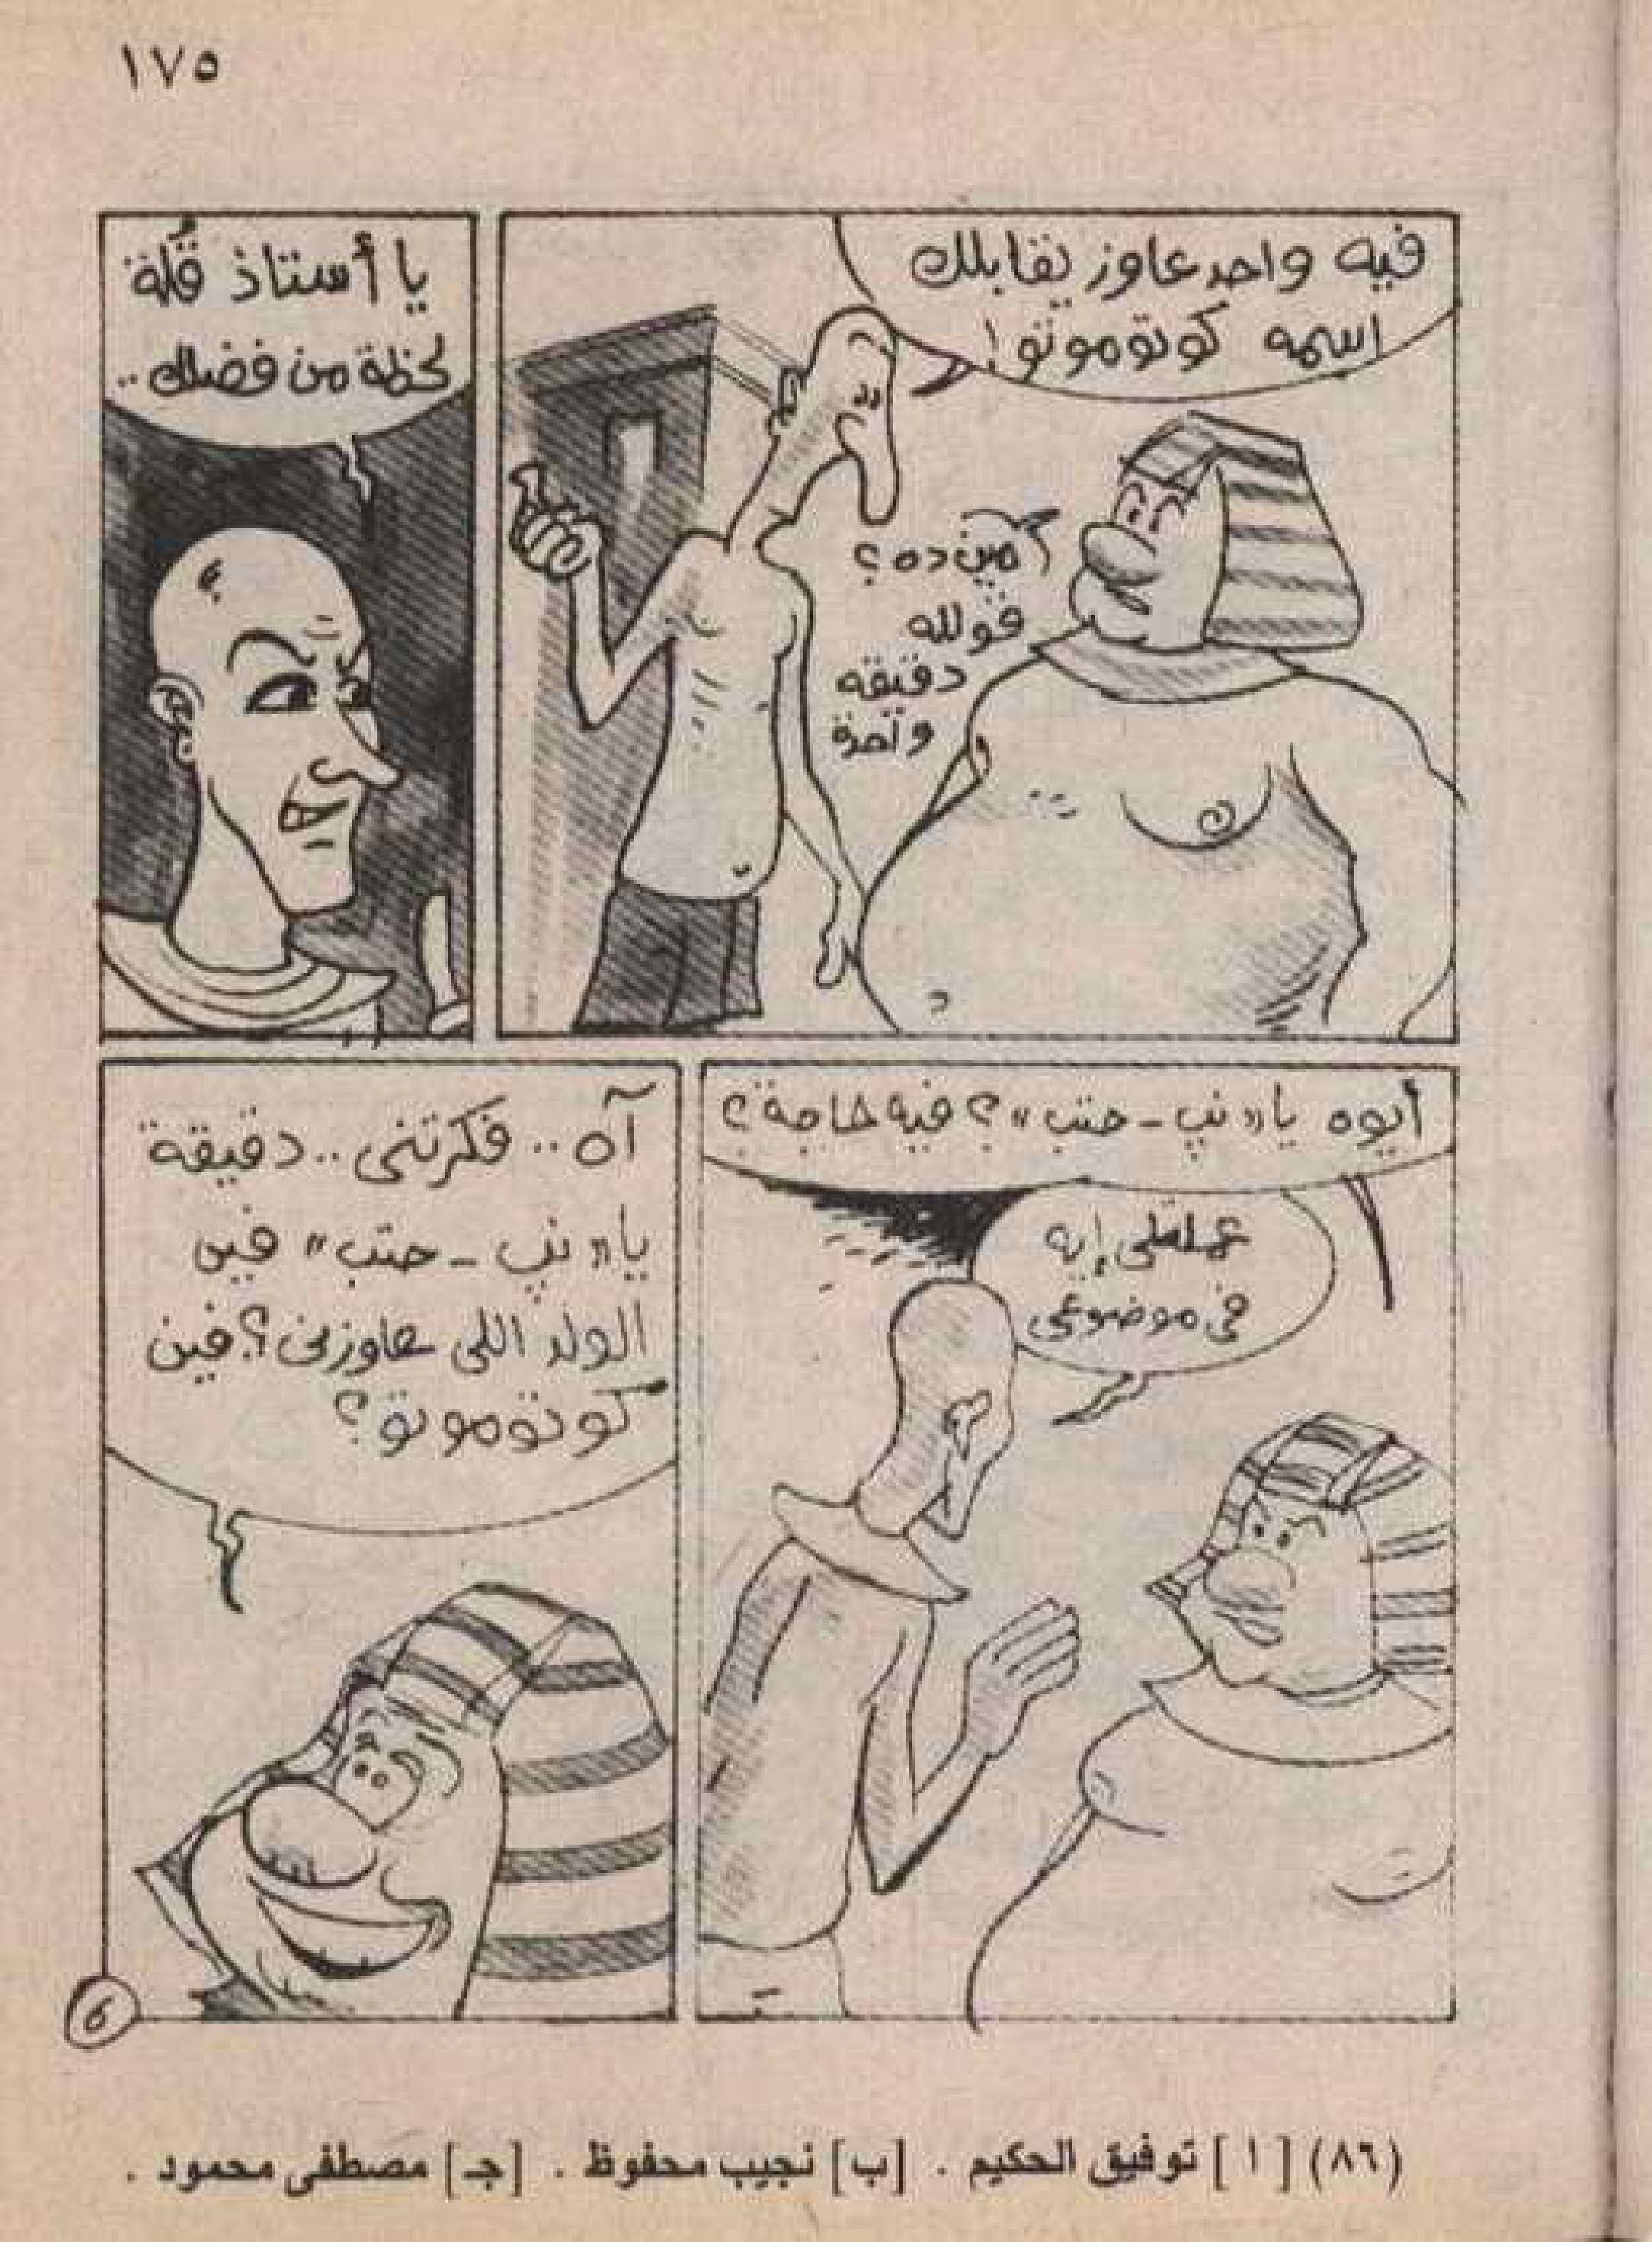 ١٧٥
فيه واحد عاوز يقابلك
اسمه كوتوموتو!
مين ده؟
قولله
دقيقة
واحدة
يا أستاذ قُلة
لحظة من فضلك..
أيوه يا «نب - حتب»؟ فيه حاجة؟
عملتلى إيه
فى موضوعى
آه.. فكرتنى.. دقيقة
يا «نب - حتب» فين
الولد اللى عاوزنى؟ فين
كوتوموتو؟
6
(٨٦) [ ا ] توفيق الحكيم . [ب] نجيب محفوظ . [جـ] مصطفى محمود .